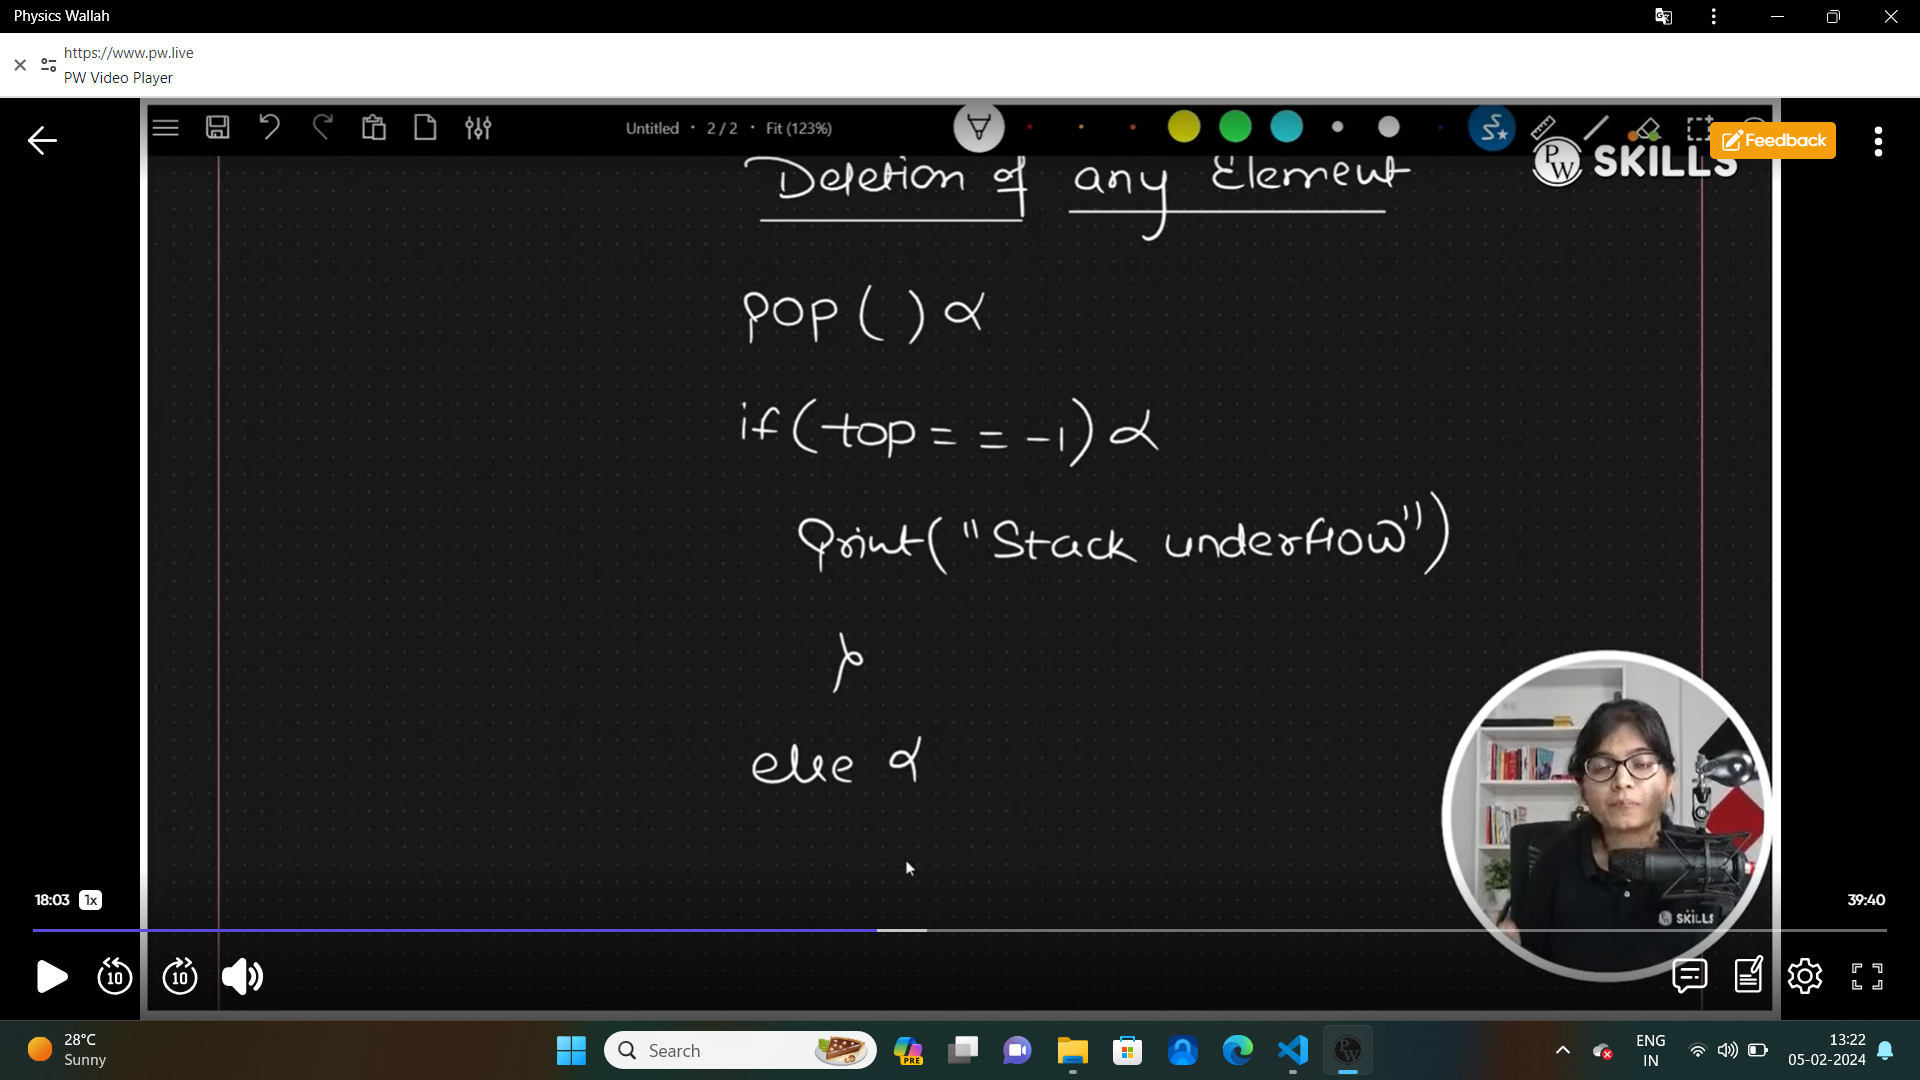 Physics Wallah
https://www.pw.live
PW Video Player
Untitled • 2 / 2 • Fit (123%)
Feedback
PW SKILLS
Deletion of any Element
pop ( ) {
if (top = = -1) {
print ("Stack underflow")
}
else {
18:03 1x
39:40
SKILLS
10 10
28°C
Sunny
Search
PRE
ENG
IN
13:22
05-02-2024